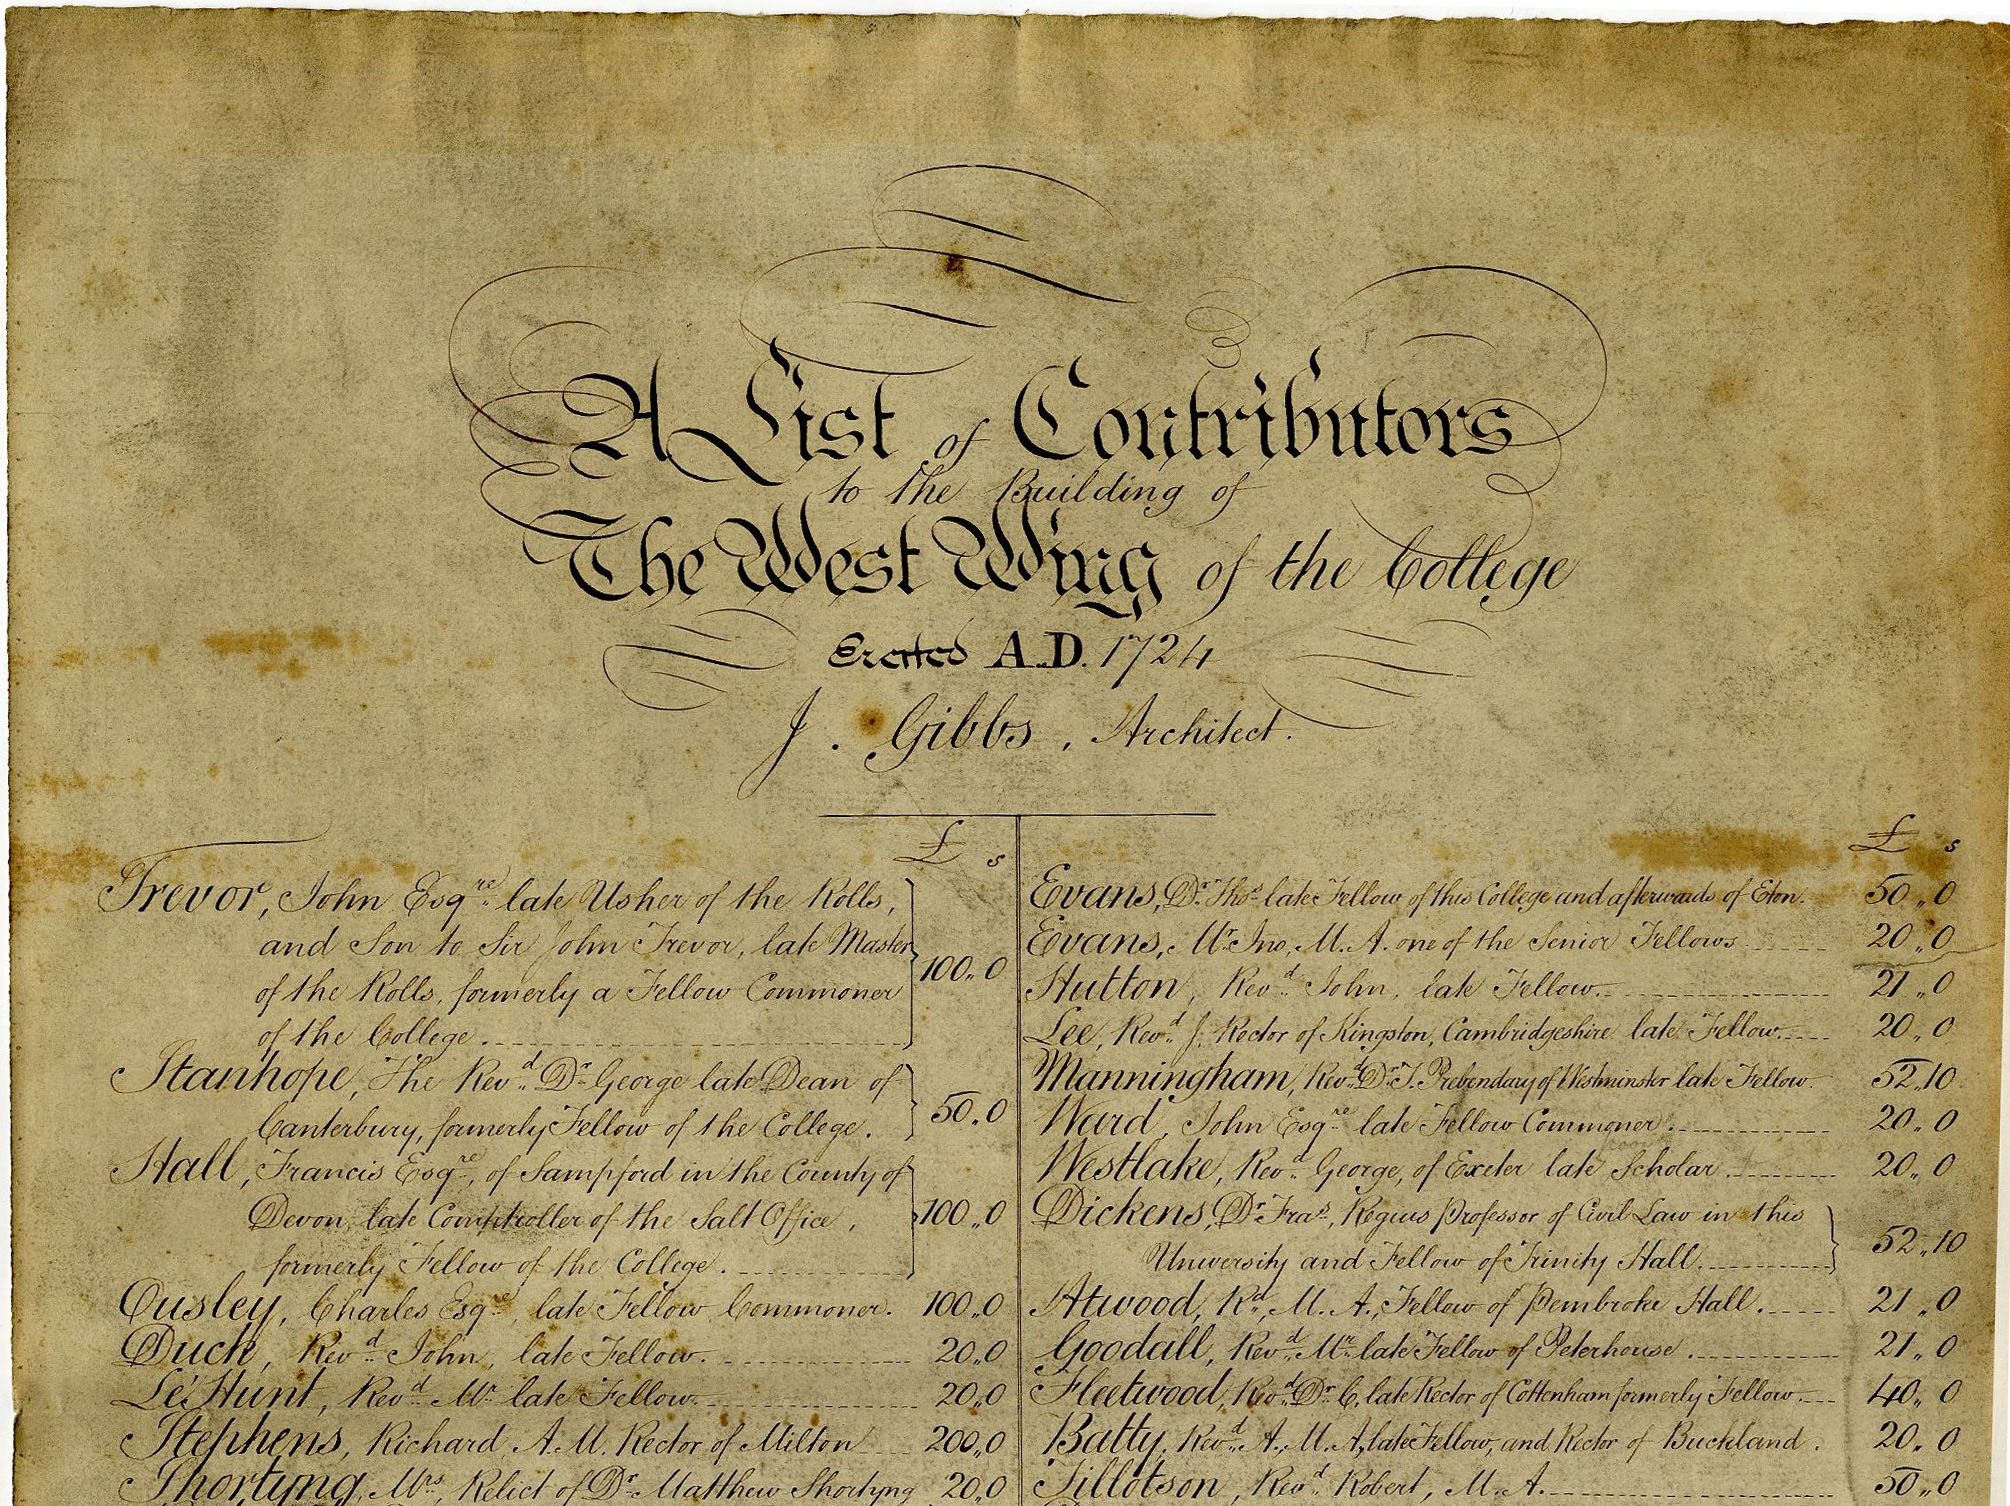 A List of Contributors
to the Building of
The West Wing of the College
Erected A.D. 1724
J. Gibbs, Architect.
£ s
Trevor, John Esqre. late Usher of the Rolls,
and Son to Sir John Trevor, late Master
of the Rolls, formerly a Fellow Commoner
of the College. 100,,0
Stanhope, The Revd. Dr. George late Dean of
Canterbury, formerly Fellow of the College. 50,,0
Hall, Francis Esqre., of Sampford in the County of
Devon, late Comptroller of the Salt Office,
formerly Fellow of the College. 100,,0
Ousley, Charles Esqre., late Fellow Commoner. 100,,0
Duck, Revd. John, late Fellow. 20,,0
Le'Hunt, Revd. Mr. late Fellow. 20,,0
Stephens, Richard, A.M. Rector of Milton 200,,0
Shortyng, Mrs, Relict of Dr. Matthew Shortyng 20,,0
£ s
Evans, Dr. Thos. late Fellow of this College and afterwards of Eton. 50,,0
Evans, Mr. Jno, M.A. one of the Senior Fellows 20,,0
Hutton, Revd. John, late Fellow. 21,,0
Lee, Revd. J. Rector of Kingston, Cambridgeshire late Fellow. 20,,0
Manningham, Revd. Dr. T. Prebendary of Westminster late Fellow. 52,,10
Ward, John Esqre. late Fellow Commoner. 20,,0
Westlake, Revd. George, of Exeter late Scholar. 20,,0
Dickens, Dr. Fras., Regius Professor of Civil Law in this
University and Fellow of Trinity Hall. 52,,10
Atwood, Rd., M.A., Fellow of Pembroke Hall. 21,,0
Goodall, Revd. Mr. late Fellow of Peterhouse. 21,,0
Fleetwood, Revd. Dr. C. late Rector of Cottenham formerly Fellow. 40,,0
Batty, Revd. A., M.A, late Fellow, and Rector of Buckland. 20,,0
Tillotson, Revd. Robert, M.A. 50,,0